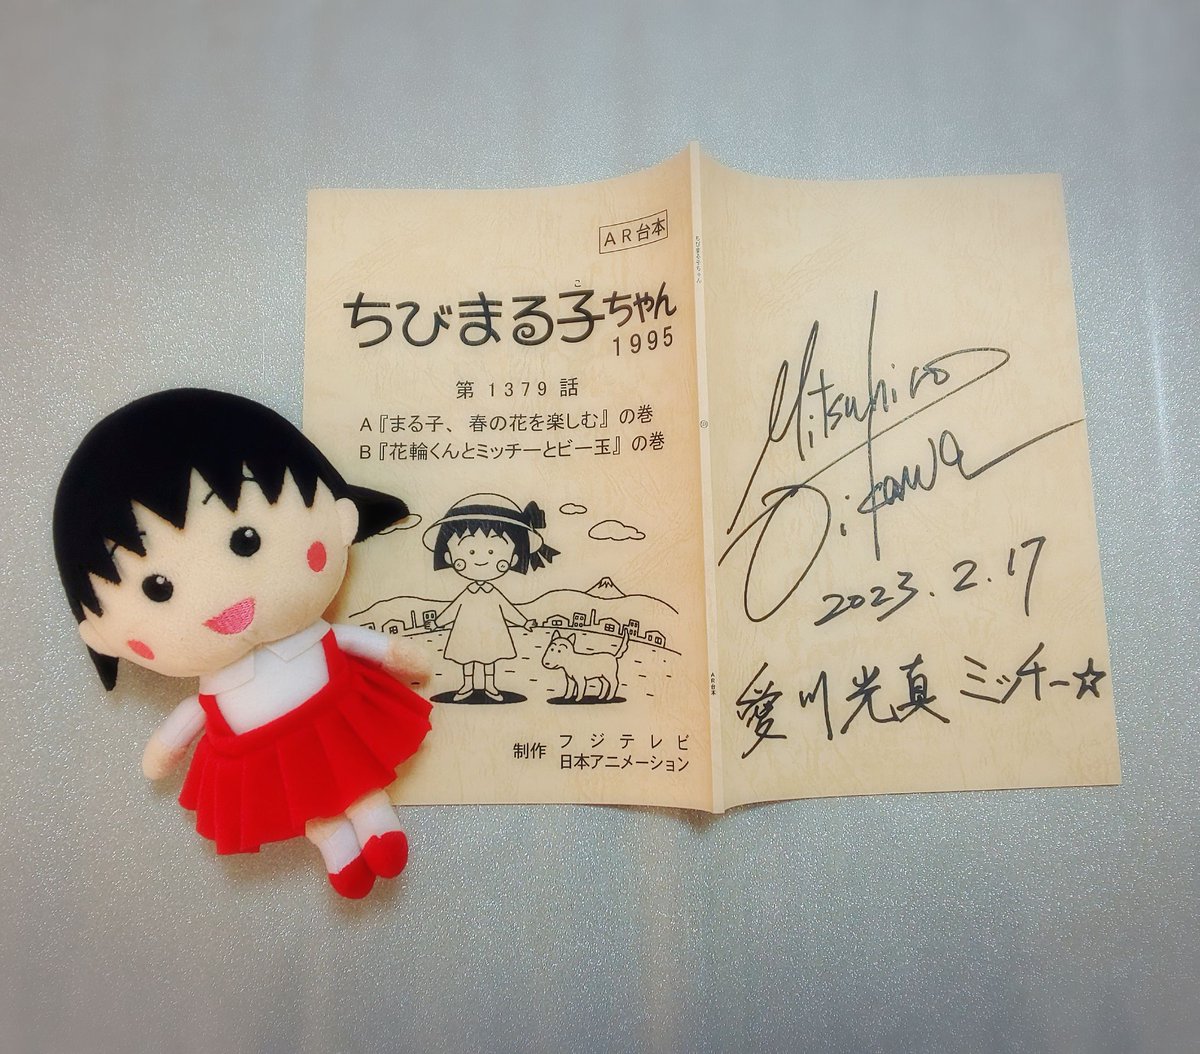 AR台本
こ
ちびまる子ちゃん
1995
第 1379 話
A『まる子、春の花を楽しむ』の巻
B『花輪くんとミッチーとビー玉』の巻
制作 フジテレビ
日本アニメーション
ちびまる子ちゃん
AR台本
Mitsuhiro
Oikawa
2023.2.17
愛川光真 ミッチー☆